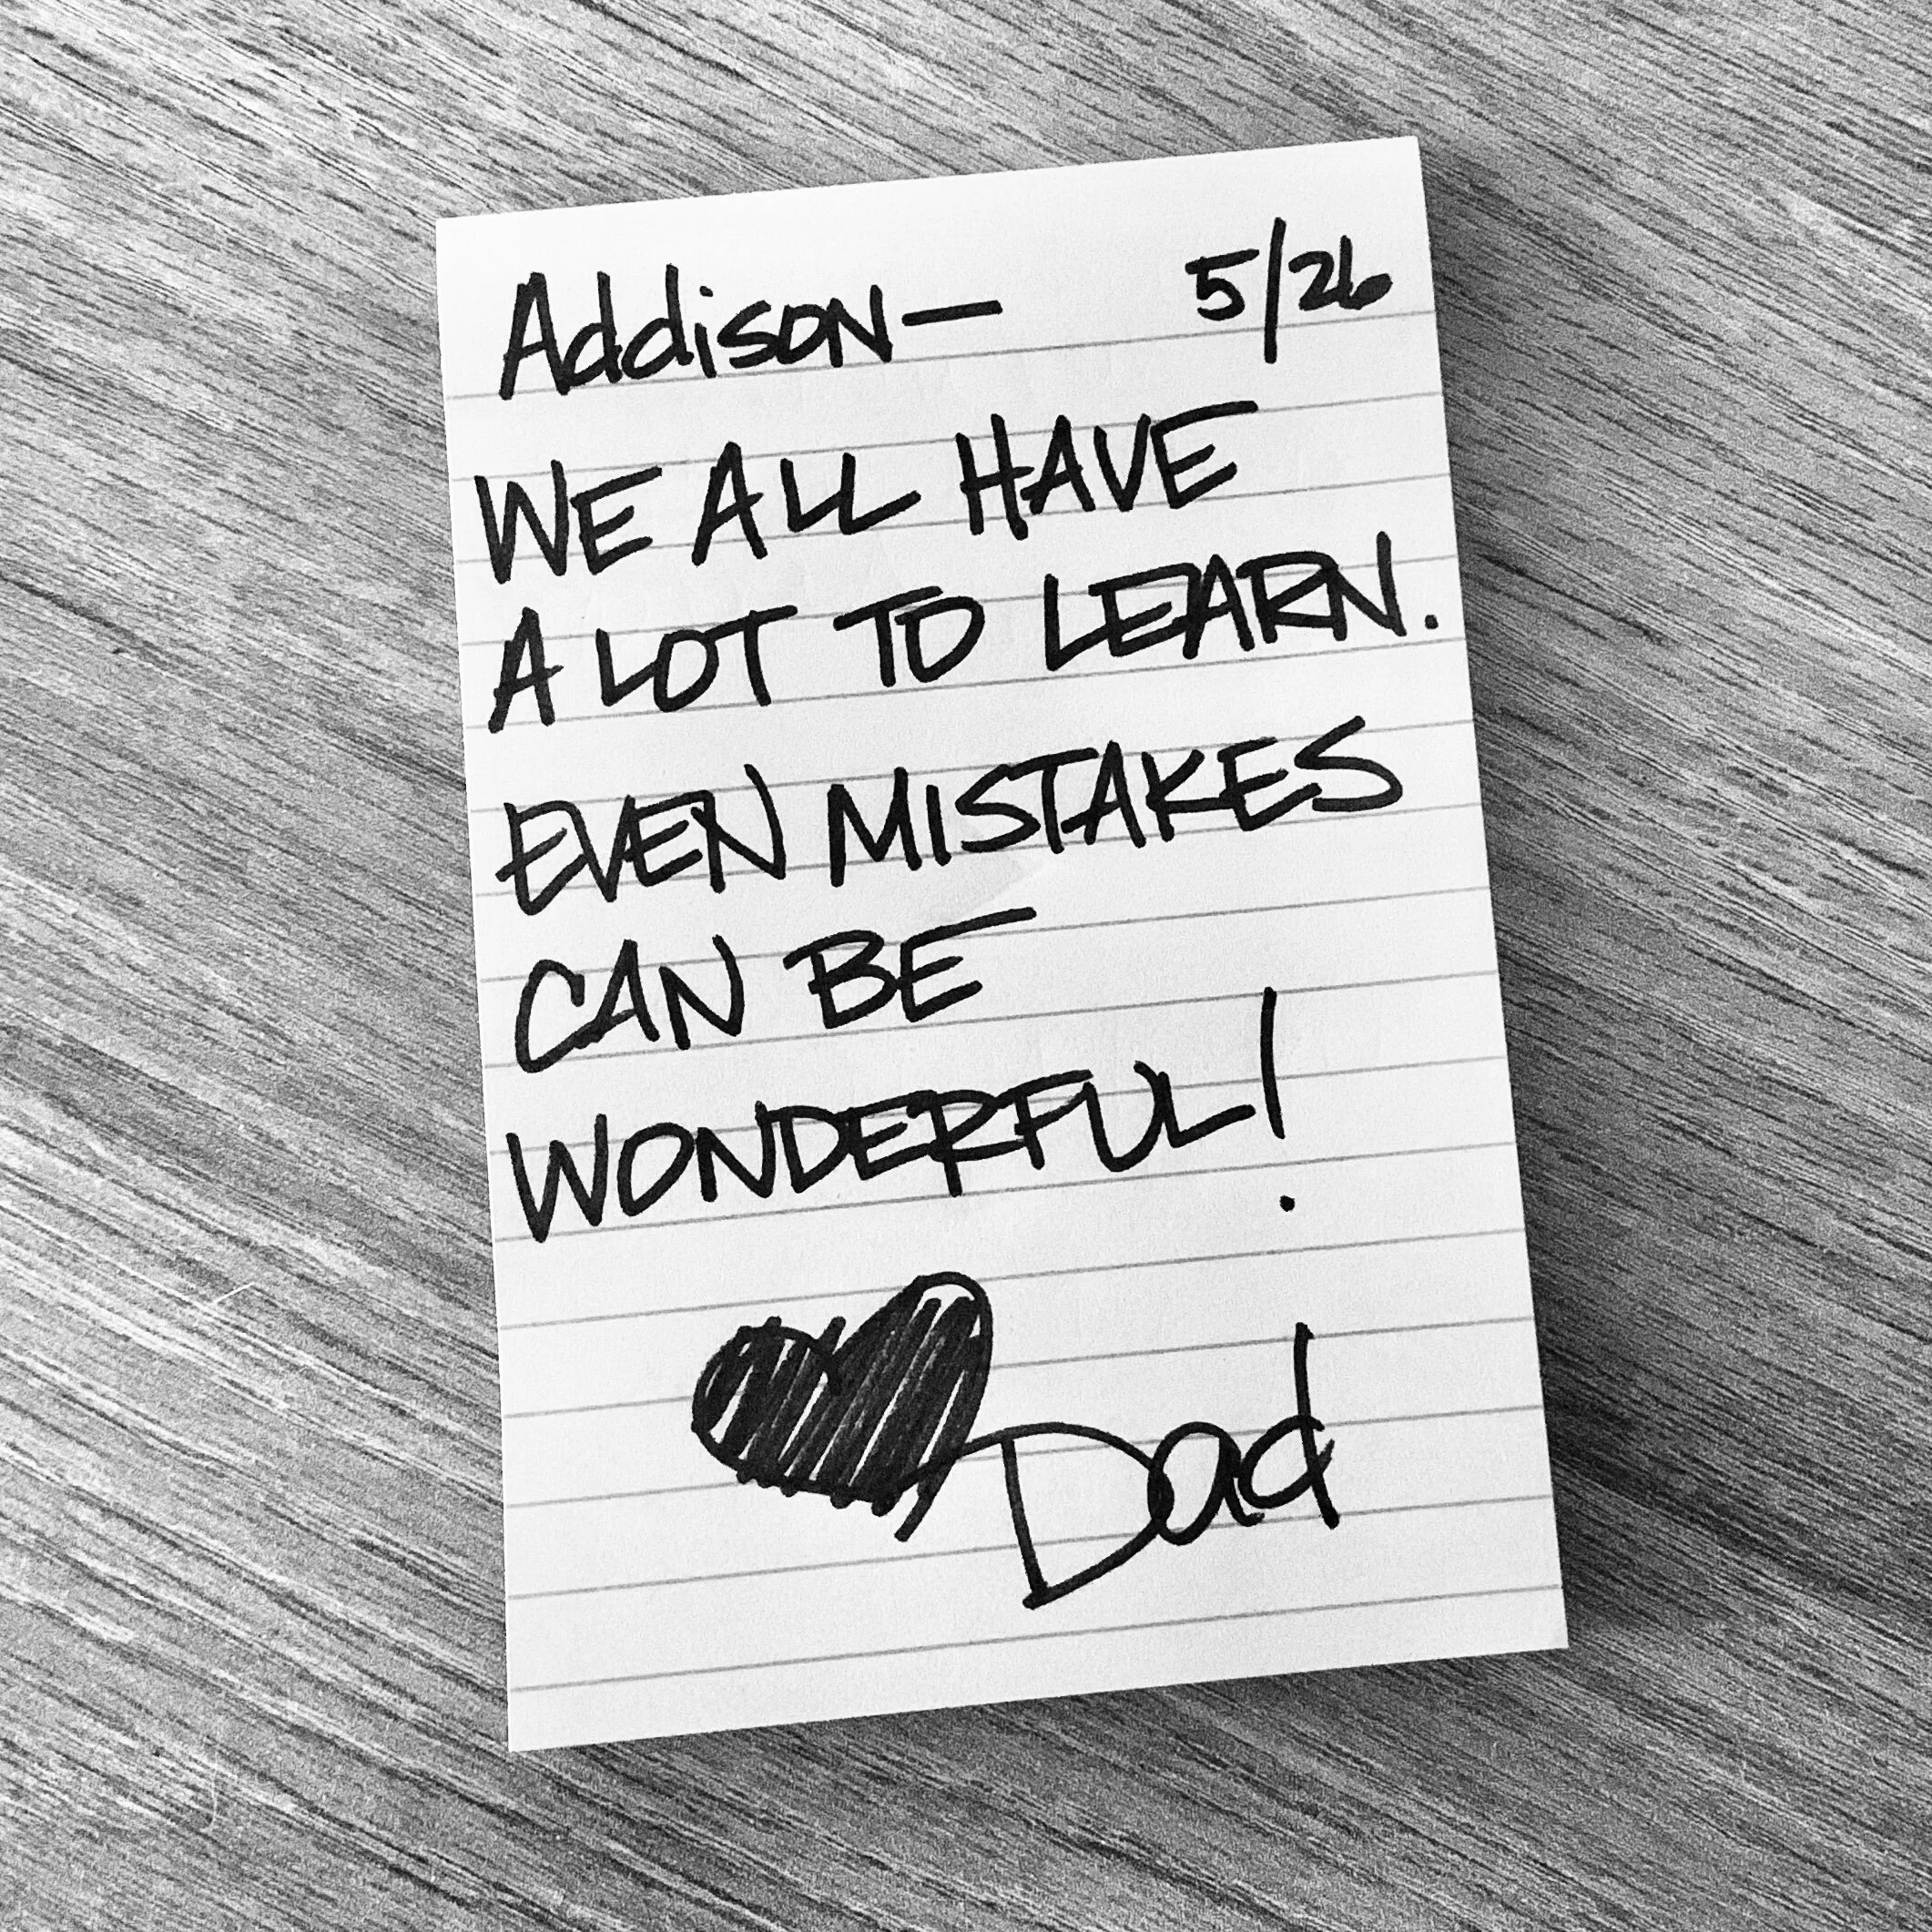 Addison— 5/26
WE ALL HAVE
A LOT TO LEARN.
EVEN MISTAKES
CAN BE
WONDERFUL!
Dad